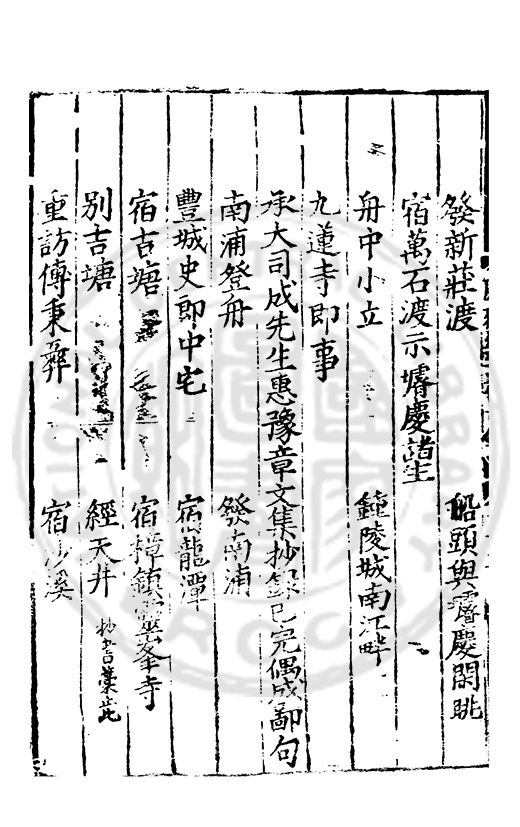 發新莊渡　船頭與壻慶閒眺
宿萬石渡示壻慶諸生
舟中小立　鍾陵城南江畔
九蓮寺即事
承大司成先生惠豫章文集抄錄已完偶成鄙句
南浦登舟　發南浦
豐城史郎中宅　宿龍潭
宿吉塘　宿樟鎮靈峯寺
別吉塘　經天井　抄書藁此
重訪傅秉彞　宿沙溪